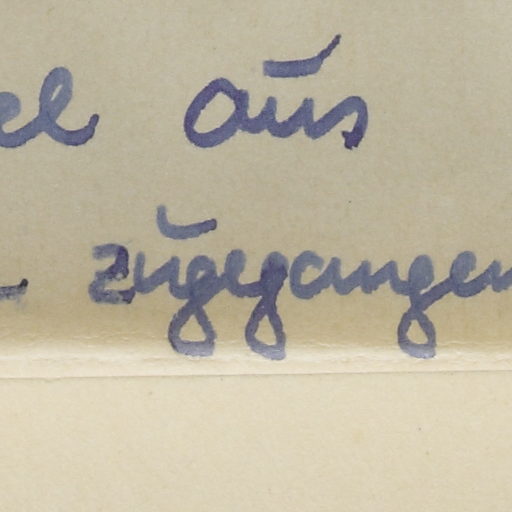 el aus
zugegangen